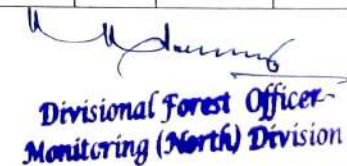 Divisional Forest Officer
Monitoring (North) Division